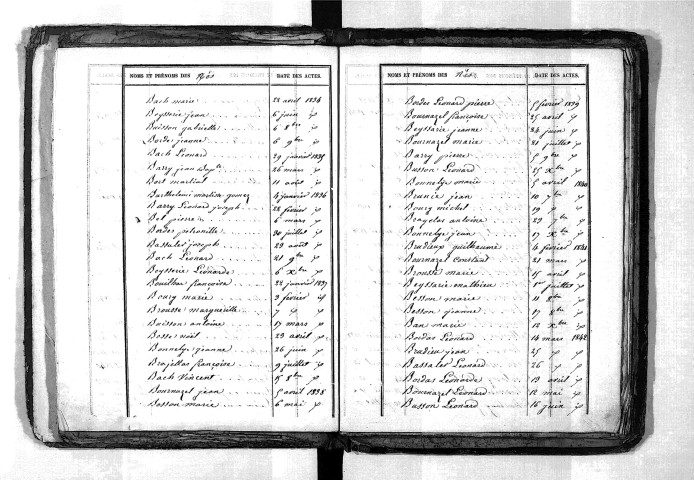 NOMS ET PRÉNOMS DES Nés DATE DES ACTES.
Bach marie 22 avril 1834
Beysserie jean 6 juin
Buisson gabrielle 6 8bre
Borde jeanne 6 9bre
Bach Léonard 29 janvier 1835
Barry jean 26 mars
Bort martial 11 août
Barthelemi martin 4 janvier 1836
Barry Léonard joseph 22 février
Bel pierre 6 mars
Bordes petronille 30 juillet
Bassaler joseph 29 août
Bach Léonard 21 9bre
Beysserie Léonarde 6 Xbre
Bouilhac françoise 22 janvier 1837
Boury marie 3 février
Brousse marguerite 7
Buisson antoine 17 mars
Bosse noël 29 avril
Bonnelye jeanne 26 juin
Brajellas françoise 9 juillet
Bach Vincent 15 8bre
Bournazel jean 5 avril 1838
Bosson marie 6 mai
NOMS ET PRÉNOMS DES Nés DATE DES ACTES.
Bordes Léonard pierre 5 février 1839
Bournazel françoise 25 avril
Beyssarie jeanne 24 juin
Bournazel marie 21 juillet
Barry pierre 5 9bre
Busson Léonard 25 Xbre
Bonnelye marie 5 avril 1840
Brunie jean 10
Boury michel 19
Bragelas antoine 29
Bonnelye jean 17 Xbre
Bradieux guilhaume 4 février 1841
Bournazel constant 21 mars
Brousse marie 15 avril
Beyssarie mathieu 1er juillet
Besson marie 11 8bre
Besson jeanne 17 8bre
Ban marie 12 Xbre
Bordas Léonard 14 mars 1842
Bradieu jean 25
Bassaler Léonard 26
Bordas Léonarde 13 avril
Bournazel Léonard 12 mai
Busson Léonard 16 juin